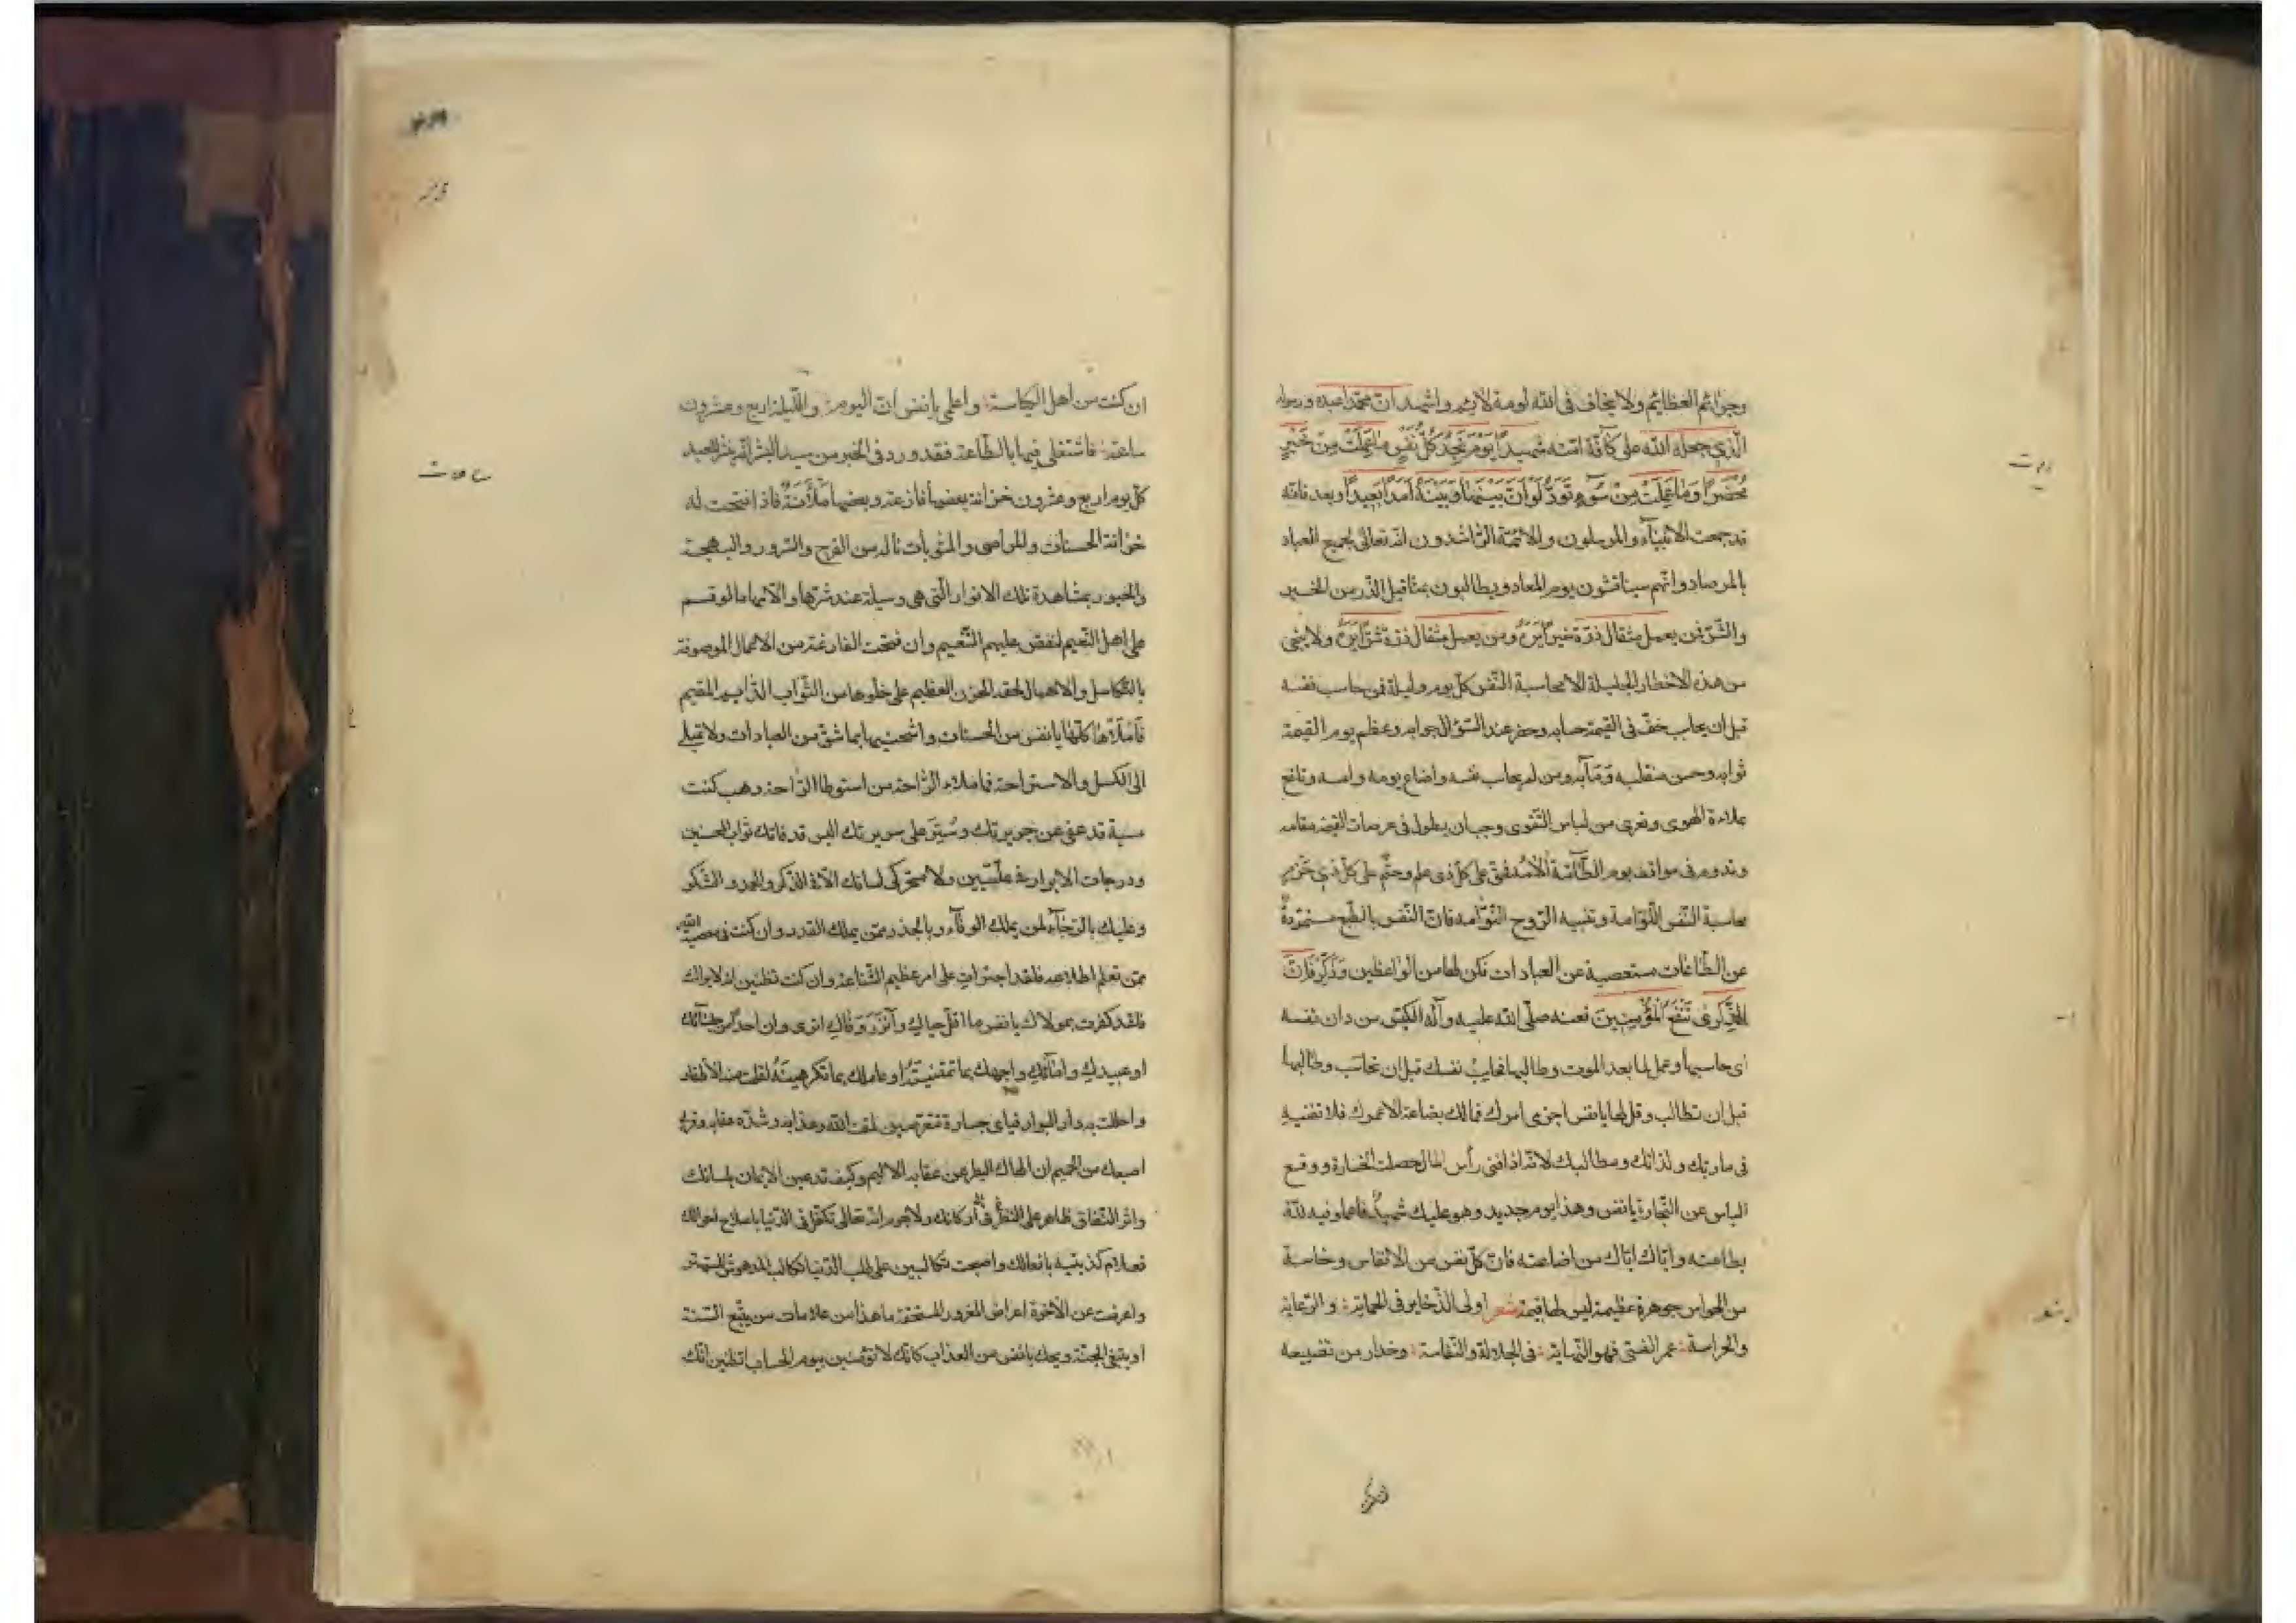 وجرائم العظائم ولا يخاف فى الله لومة لائم واشهد انّ محمّدا عبده ورسوله
الّذي جعله الله على كافّة امّته شهيدًا يَوْمَ تَجِدُ كُلُّ نَفْسٍ مٰا عَمِلَتْ مِنْ خَيْرٍ
مُحْضَرًا وَمٰا عَمِلَتْ مِنْ سُوۤءٍ تَوَدُّ لَوْ اَنَّ بَيْنَهٰا وَبَيْنَهُ اَمَدًا بَعِيدًا وبعد فانّه
قد جمعت الانبيآء والمرسلون والائمّة الرّاشدون انّه تعالى لجميع العباد
بالمرصاد وانّهم سيناقشون يوم المعاد ويطالبون بمثاقيل الذّر من الخير
والشّرّ فمن يعمل مثقال ذرّة خيرًا يره ومن يعمل مثقال ذرّة شرًّا يره ولا ينجى
من هذه الاخطار الجليلة الا محاسبة النّفس كلّ يوم وليلة فمن حاسب نفسه
قبل ان يحاب خفّ فى القيمة حسابه وحضر عند السّؤال جوابه وعظم يوم القيمة
ثوابه وحسن منقلبه ومَآبه ومن لم يحاسب نفسه واضاع يومه وامسه وتلفع
بملاءة الهوى وتعرى من لباس التّقوى وجب ان يطول فى عرصات القيمة مقامه
وتدوم فى مواقف يوم الطّآمّة الامه فحق على كلّ ذى علم وحتم على كلّ ذي حَزْمٍ
محاسبة النّفس اللّوّامة وتنبيه الرّوح النّوّامه فانّ النّفس بالطّبع متمرّدةٌ
عن الطّاعات مستعصية عن العبادات فكن لها من الواعظين وَذَكِّرْ فَاِنَّ
الذِّكْرىٰ تَنْفَعُ الْمُؤْمِنِينَ فعنه صلّى الله عليه وآله الكيّس من دان نفسه
اى حاسبها وعمل لما بعد الموت وطالبها فحاسِبْ نفسك قبل ان تحاسَب وطالبها
قبل ان تطالب وقل لها يا نفس اجزى امورك فمالك بضاعة الا عمرك فلا تفنيه
فى مآربك ولذاتك ومطالبك لانّه اذا فنى رأس المال حصلت الخسارة ووقع
الياس عن التّجارة يا نفس وهذا يوم جديد وهو عليك شهيدٌ فاعملو فيه لله
بطاعته وايّاك ايّاك من اضاعته فانّ كلّ نفس من الانفاس وخاسة
من الحواس جوهرة عظيمة ليس لها قيمة شعر اولى الذّخاير فى الحماية؛ والرّعاية
والحراسة؛ عمر الفتى فهو النّهاية؛ فى الجلالة والنّفاسة؛ وحذار من تضييعه
ان كنت من اهل الكياسة؛ واعلمى يا نفس انّ اليوم؛ واللّيلة اربع وعشرون
ساعة؛ فاشتغلى فيها بالطّاعة فقد ورد فى الخبر من سيد البشر انّه ينشر للعبد
كلّ يوم اربع وعشرون خزانة بعضها فارغة وبعضها مَلْاٰنَةٌ فاذا افتحت له
خزانة الحسنات والمراضى والمثوبات ناله من الفرح والسّرور والبهجة
والحبور بمشاهدة تلك الانوار الّتى هى وسيلة عند شرّها والانّها ما لو قسم
على اهل النّعيم لنغص عليهم التّنعيم وان فتحت الفارغة من الاعمال الموصوفة
بالتّكاسل والاهمال لحقه الحزن العظيم على خلوها من الثّواب الدّايم المقيم
فَامْلَاَهٰا كلّهٰا يا نفس من الحسنات واشحنيها بما شقّ من العبادات ولا تميلى
الى الكسل والاستراحة فما ملاء الرّاحة من استوطا الرّاحة وهب كنت
مسية قد عفى عن جريرتك وسُتِرَ على سريرتك اليس قد فاتك ثواب المحسنين
ودرجات الابرار فى علّيين ولا تحرّكى لسانك الّا فى الذّكر والحمد والشكر
وعليك بالرّجآء لمن يملك الوفآء وبالحذر ممّن يملك القدر وان كنت فى معصية الله
ممّن تعلم اطلاعه فلقد اجترات على امر عظيم الشّناعة وان كنت تظنين انّه لا يراك
فلقد كفرت بمولاك يا نفس ما اقلّ حياك وآنْزَرَ وَفٰاك اترى وان احدًا من
او عبيدك وامائك واجهك بما تمقتيهُ او عاملك بما تكرهينهُ لقلت منه الاظفار
واحللت به دار البوار فباى جسارة تتعرّضين لمقت الله وعذابه وشدّة عقابه وقرا
اصبعك من الحميم ان الهاك البطر عن عقابه الاليم وكيف تدعين الايمان بلسانك
واثر النّفاق ظاهر على النطّر فى اركانك ولا جرم انّه تعالى تكفّل فى الدّنيا باصلاح احوالك
فعلام كذبتيه بافعالك واصبحت تكالبين على طلب الدّنيا تكالب المدهوش المستهتر
واعرضت عن الآخرة اعراض المغرور المستحقر ما هذا من علامات من يتّبع السّنة
او يبتغى الجنّة ويحك يا نفس من العذاب كانّك لا تؤمنين بيوم الحساب اتظنين انّك